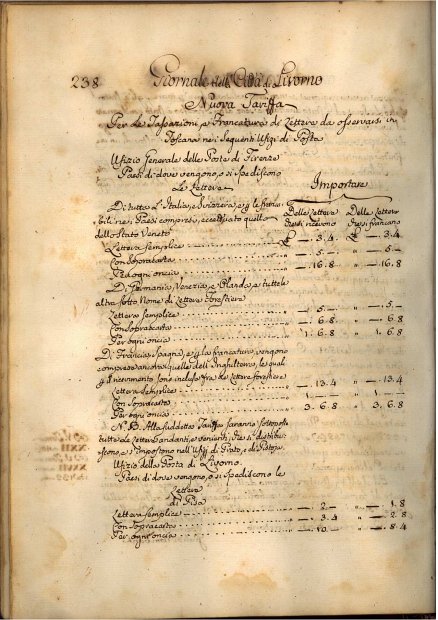 238 Giornale della Città di Livorno
Nuova Tariffa
Per le Tassazioni, e Francature de Lettere da osservarsi in
Toscana nei Seguenti Ufizi di Posta
Ufizio Generale delle Poste di Firenze
Paesi di dove vengono, o si spediscono
Le Lettere
Importare
Di tutta l'Italia, e Svizzera, e gli franca-
bili nei Paesi compresi, eccettuato quello
dello Stato Veneto
Delle Lettere che si ricevono
Delle Lettere che si francano
Lettera semplice £ —. 3. 4 £ —. 3. 4
Con Sopracarta —. 5. — —. 5. —
Per ogni oncia —. 16. 8 —. 16. 8
Di Germania, Venezia, e Olanda, e tutte le
altre sotto Nome di Lettere Forestiere
Lettera semplice —. 5. — —. 5. —
Con Sopracarta —. 6. 8 —. 6. 8
Per ogni oncia 1. 6. 8 1. 6. 8
Di Francia, Spagna, e gli francature, vengono
comprese ancora quelle dell'Inghilterra, le quali
di ricevimento sono incluse fra le Lettere forestiere
Lettera semplice —. 13. 4 —. 13. 4
Con Sopracarta 1. —. — 1. —. —
Per ogni oncia 3. 6. 8 3. 6. 8
N. B. Alla suddetta Tariffa saranno sottoposte
tutte le Lettere andanti, e venienti, che si distribui-
scono, e s'impostono nell'Ufizj di Prato, e di Pistoja.
Ufizio della Posta di Livorno.
Paesi di dove vengono, o si spediscono le
Lettere
di Pisa
Lettera semplice —. 2. — —. 1. 8
Con Sopracarta —. 3. 4 —. 2. 8
Per ogni oncia —. 10. — —. 8. 4